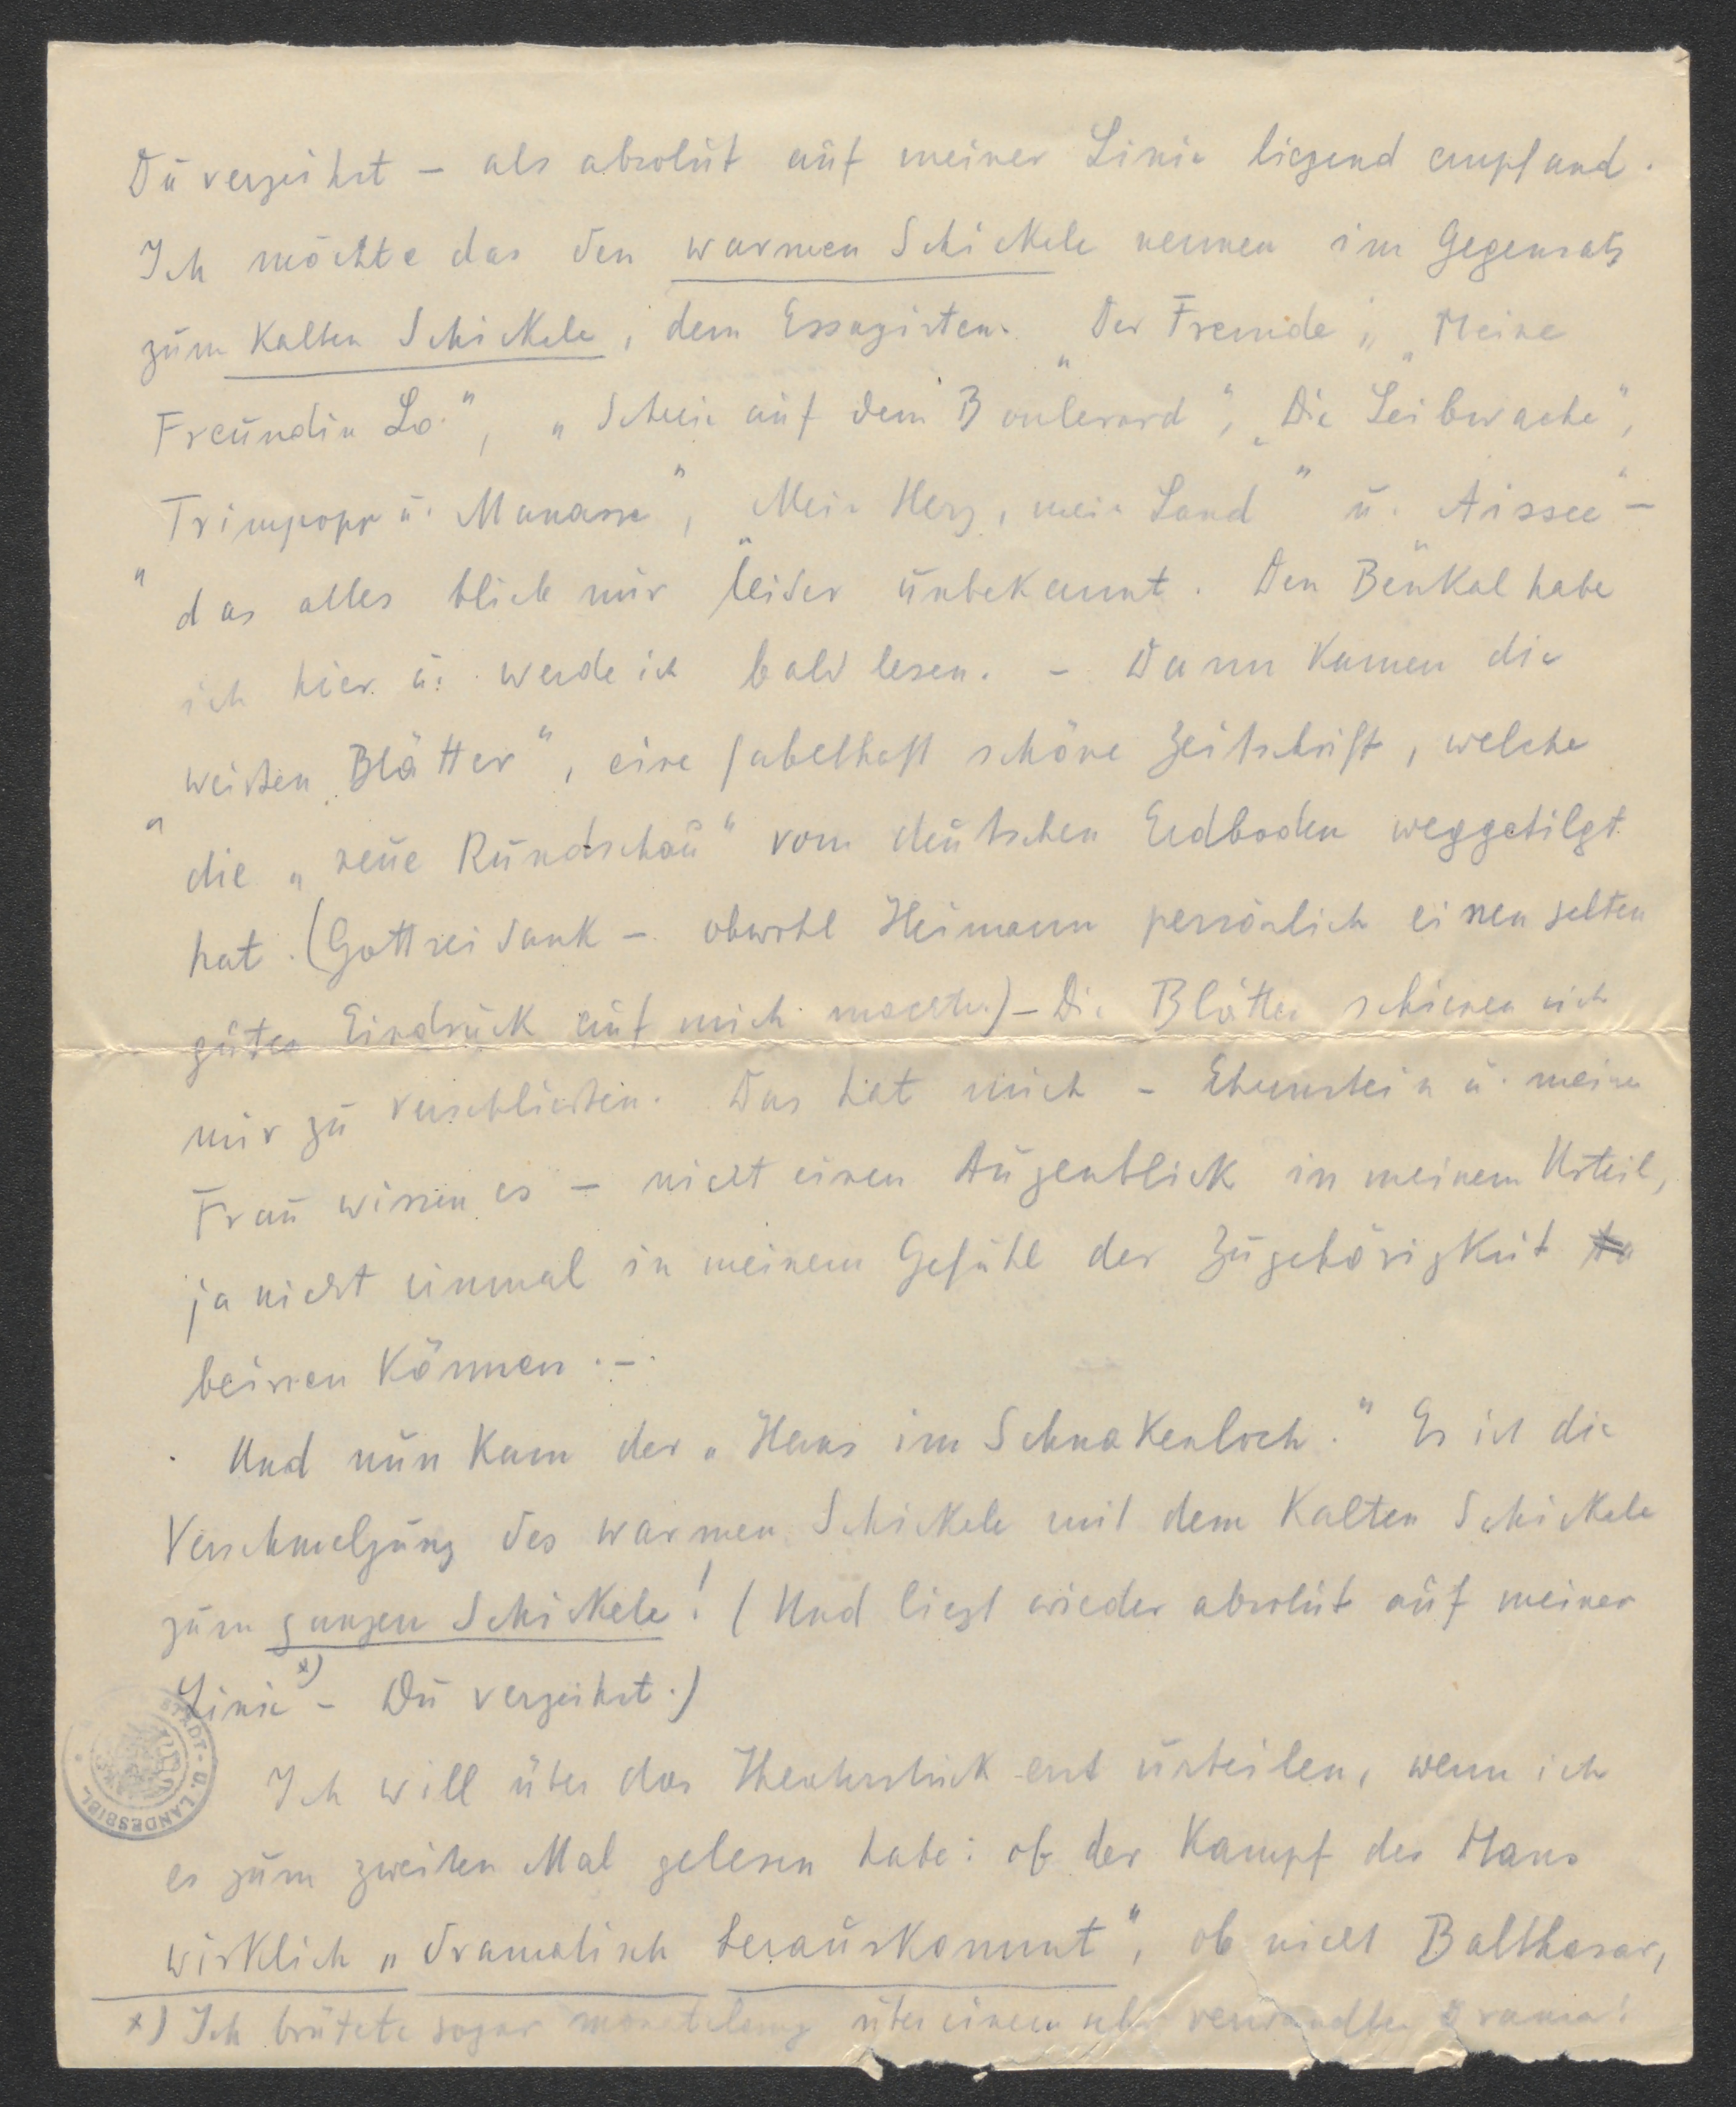 Du verzeihst – als absolut auf meiner Linie liegend empfand.
Ich möchte das den warmen Schickele nennen im Gegensatz
zum Kalten Schickele, dem Essayisten. „Der Fremde", „Meine
Freundin Lo.", „Schreie auf dem Boulevard", „Die Leibwache",
„Trimpopp u. Manasse", „Mein Herz, mein Land" u. „Aissee" –
das alles blieb mir leider unbekannt. Den Benkal habe
ich hier u. werde ich bald lesen. – Dann kamen die
„weissen Blätter", eine fabelhaft schöne Zeitschrift, welche
die „neue Rundschau" vom deutschen Erdboden weggetilgt
hat. (Gottseidank – obwohl Heimann persönlich einen selten
guten Eindruck auf mich machte.) – Die Blätter schienen sich
mir zu verschliessen. Das hat mich – Ehrenstein u. meine
Frau wissen es – nicht einen Augenblick in meinem Urteil,
ja nicht einmal in meinem Gefühl der Zugehörigkeit
beirren können. –
Und nun kam der „Hans im Schnakenloch." Es ist die
Verschmelzung des warmen Schickele mit dem Kalten Schickele
zum ganzen Schickele! (Und liegt wieder absolut auf meiner
Linie x) – Du verzeihst.)
Ich will über das Theaterstück erst urteilen, wenn ich
es zum zweiten Mal gelesen habe: ob der Kampf des Hans
wirklich „dramatisch herauskommt", ob nicht Balthasar,
x) Ich brütete sogar monatelang über einem sehr verwandten Drama!
STADT- U. LANDESBIBL.